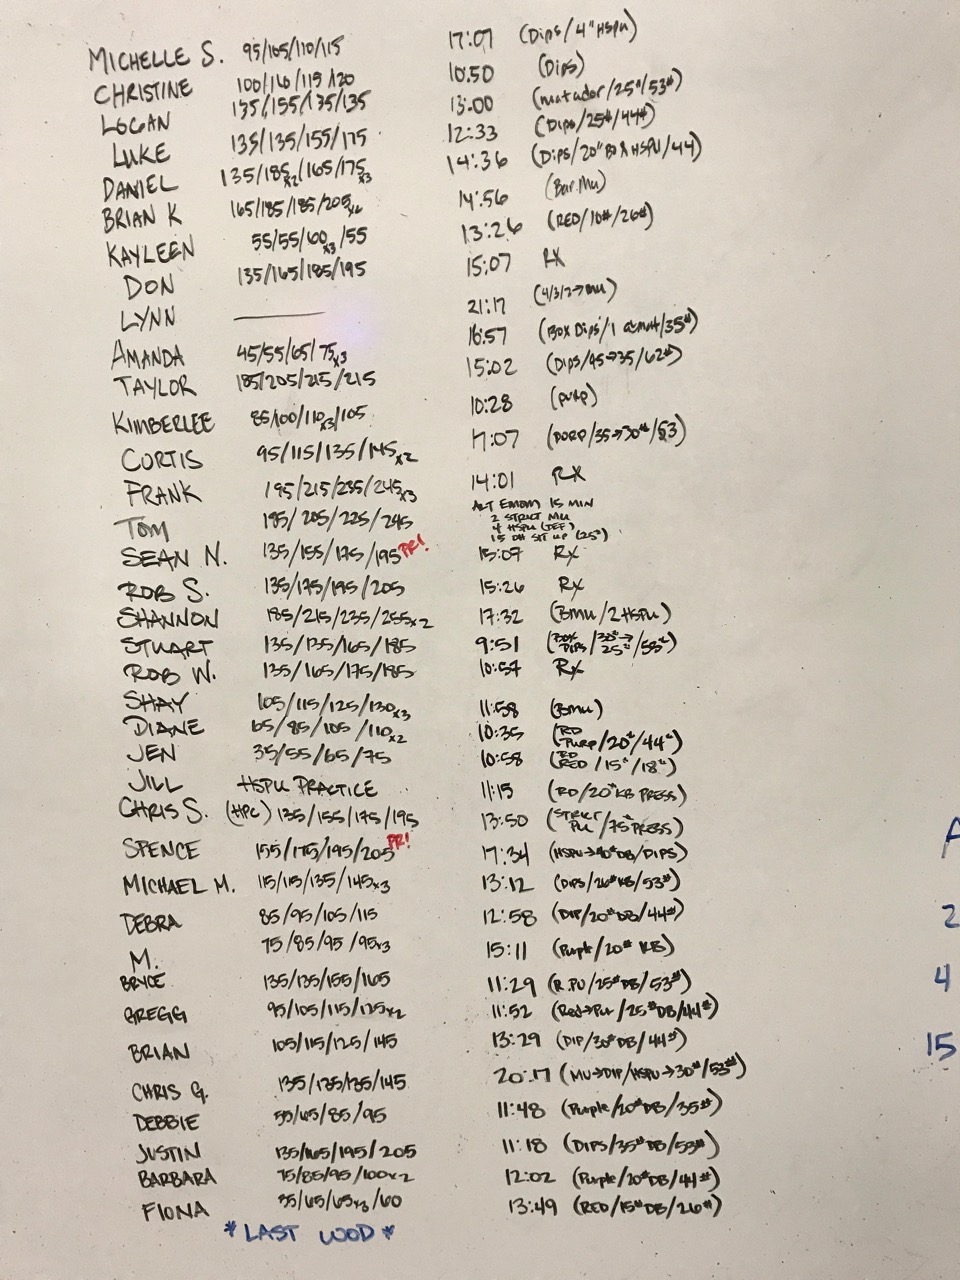 MICHELLE S. 95/105/110/115 17:07 (Dips/4" HSPU)
CHRISTINE 100/110/115/120 10:50 (Dips)
LOGAN 135/155/135/135 13:00 (matador/25#/53#)
LUKE 135/135/155/175 12:33 (Dips/25#/44#)
DANIEL 135/185x2/165/175x3 14:36 (Dips/20" BOX HSPU/44)
BRIAN K 165/185/185/205x2 14:56 (Bar Mu)
KAYLEEN 55/55/60x3/55 13:26 (RED/10#/26#)
DON 135/165/185/195 15:07 RX
LYNN 21:17 (4/3/2→mu)
AMANDA 45/55/65/75x3 16:57 (Box Dips/1 /35#)
TAYLOR 185/205/215/215 15:02 (Dips/45→35/62#)
KIMBERLEE 85/100/110x3/105 10:28 (purp)
CURTIS 95/115/135/145x2 17:07 (PURP/35→30#/53)
FRANK 195/215/235/245x3 14:01 RX
TOM 185/205/225/245 ALT EMOM 15 MIN
2 STRICT MU
4 HSPU (DEF)
15 GH SIT UP (25#)
SEAN N. 135/155/175/195 PR! 15:07 RX
ROB S. 135/175/195/205 15:26 RX
SHANNON 185/215/235/255x2 17:32 (BMU/2 HSPU)
STUART 135/135/165/185 9:51 (BOX DIPS/30#→25#/53#)
ROB W. 135/165/175/185 10:57 RX
SHAY 105/115/125/130x3 11:58 (BMU)
DIANE 65/85/105/110x2 10:35 (RD PURP/20#/44#)
JEN 35/55/65/75 10:58 (RD RED/15#/18#)
JILL HSPU PRACTICE 11:15 (RD/20# KB PRESS)
CHRIS S. (HPC) 135/155/175/195 13:50 (STRICT PU/75# PRESS)
SPENCE 155/175/195/205 PR! 17:34 (HSPU→40# DB/DIPS)
MICHAEL M. 115/115/135/145x3 13:12 (DIPS/26# KB/53#)
DEBRA 85/95/105/115 12:58 (DIP/20# DB/44#)
M. 75/85/95/95x3 15:11 (Purple/20# KB)
BRYCE 135/135/155/165 11:29 (R.PU/25# DB/53#)
GREGG 95/105/115/125x2 11:52 (Red→Pu/25# DB/44#)
BRIAN 105/115/125/145 13:29 (DIP/30# DB/44#)
CHRIS G. 135/135/135/145 20:17 (MU→DIP/HSPU→30#/53#)
DEBBIE 55/65/85/95 11:48 (Purple/20# DB/35#)
JUSTIN 135/165/195/205 11:18 (DIPS/35# DB/53#)
BARBARA 75/85/95/100x2 12:02 (Purple/20# DB/44#)
FIONA 55/65/65x3/60 13:49 (RED/15# DB/26#)
* LAST WOD *
A
2
4
15